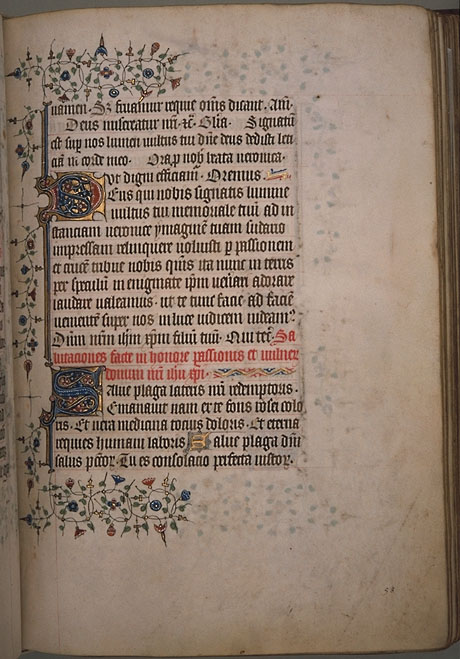 namen. Sz fruamur requie om̄s dicant. Am̄.
Deus misereatur nr̄i ⁊c̄. Glīa. Signatū
est sup nos lumen vultus tui dn̄e deus dedisti leti
ciā in corde meo. Ora p nob̄ beata veronica.
Ut digni efficiam̄. Oremus.
Deus qui nobis signatis lumine
vultus tui memoriale tuū ad in
stanciam veronice ymaginē tuam sudario
impressam relinquere voluisti p passionem
et crucē tribue nobis qūs ita nunc in terris
per speculū in enigmate ip̄m venerari adorare
laudare valeamus. ut te tunc facie ad faciē
venientē super nos iudicem videam⁹
Dn̄m nr̄m ih̄m xp̄m filiū tuū. Qui tec̄. Sa
lutaciones facte in honore passionis et vulner
domini nr̄i ih̄u xp̄i.
Salve plaga lateris nr̄i redemptoris.
Emanavit nam ex te fons rosei colo
ris. Et vera medicina tocius doloris. Et eterna
requies humani laboris Salve plaga dn̄i
salus pc̄tor̄. Tu es consolatio perfecta iustor̄.
58